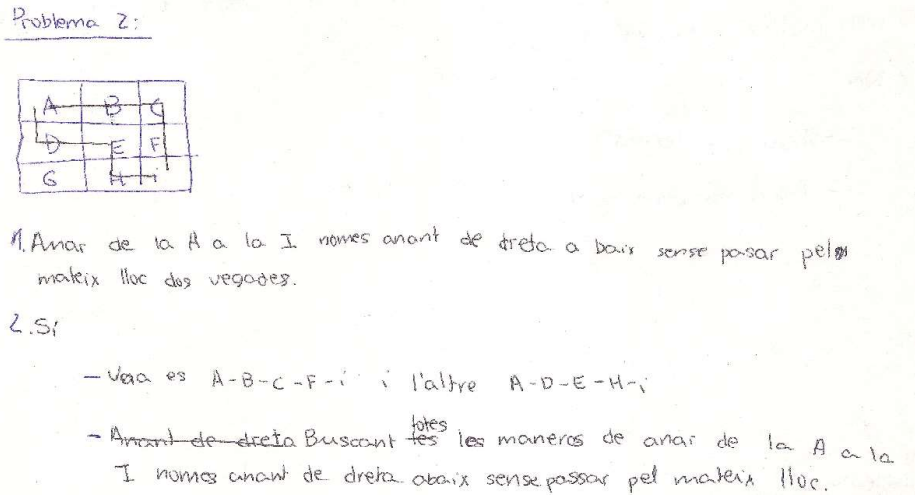 Problema 2:
A B C
D E F
G H i
1. Anar de la A a la I nomes anant de dreta a baix sense pasar pel
mateix lloc dos vegades.
2. Si
- Una es A-B-C-F-i i l'altre A-D-E-H-i
- Anant de dreta Buscant totes les maneres de anar de la A a la
I nomes anant de dreta abaix sense passar pel mateix lloc.